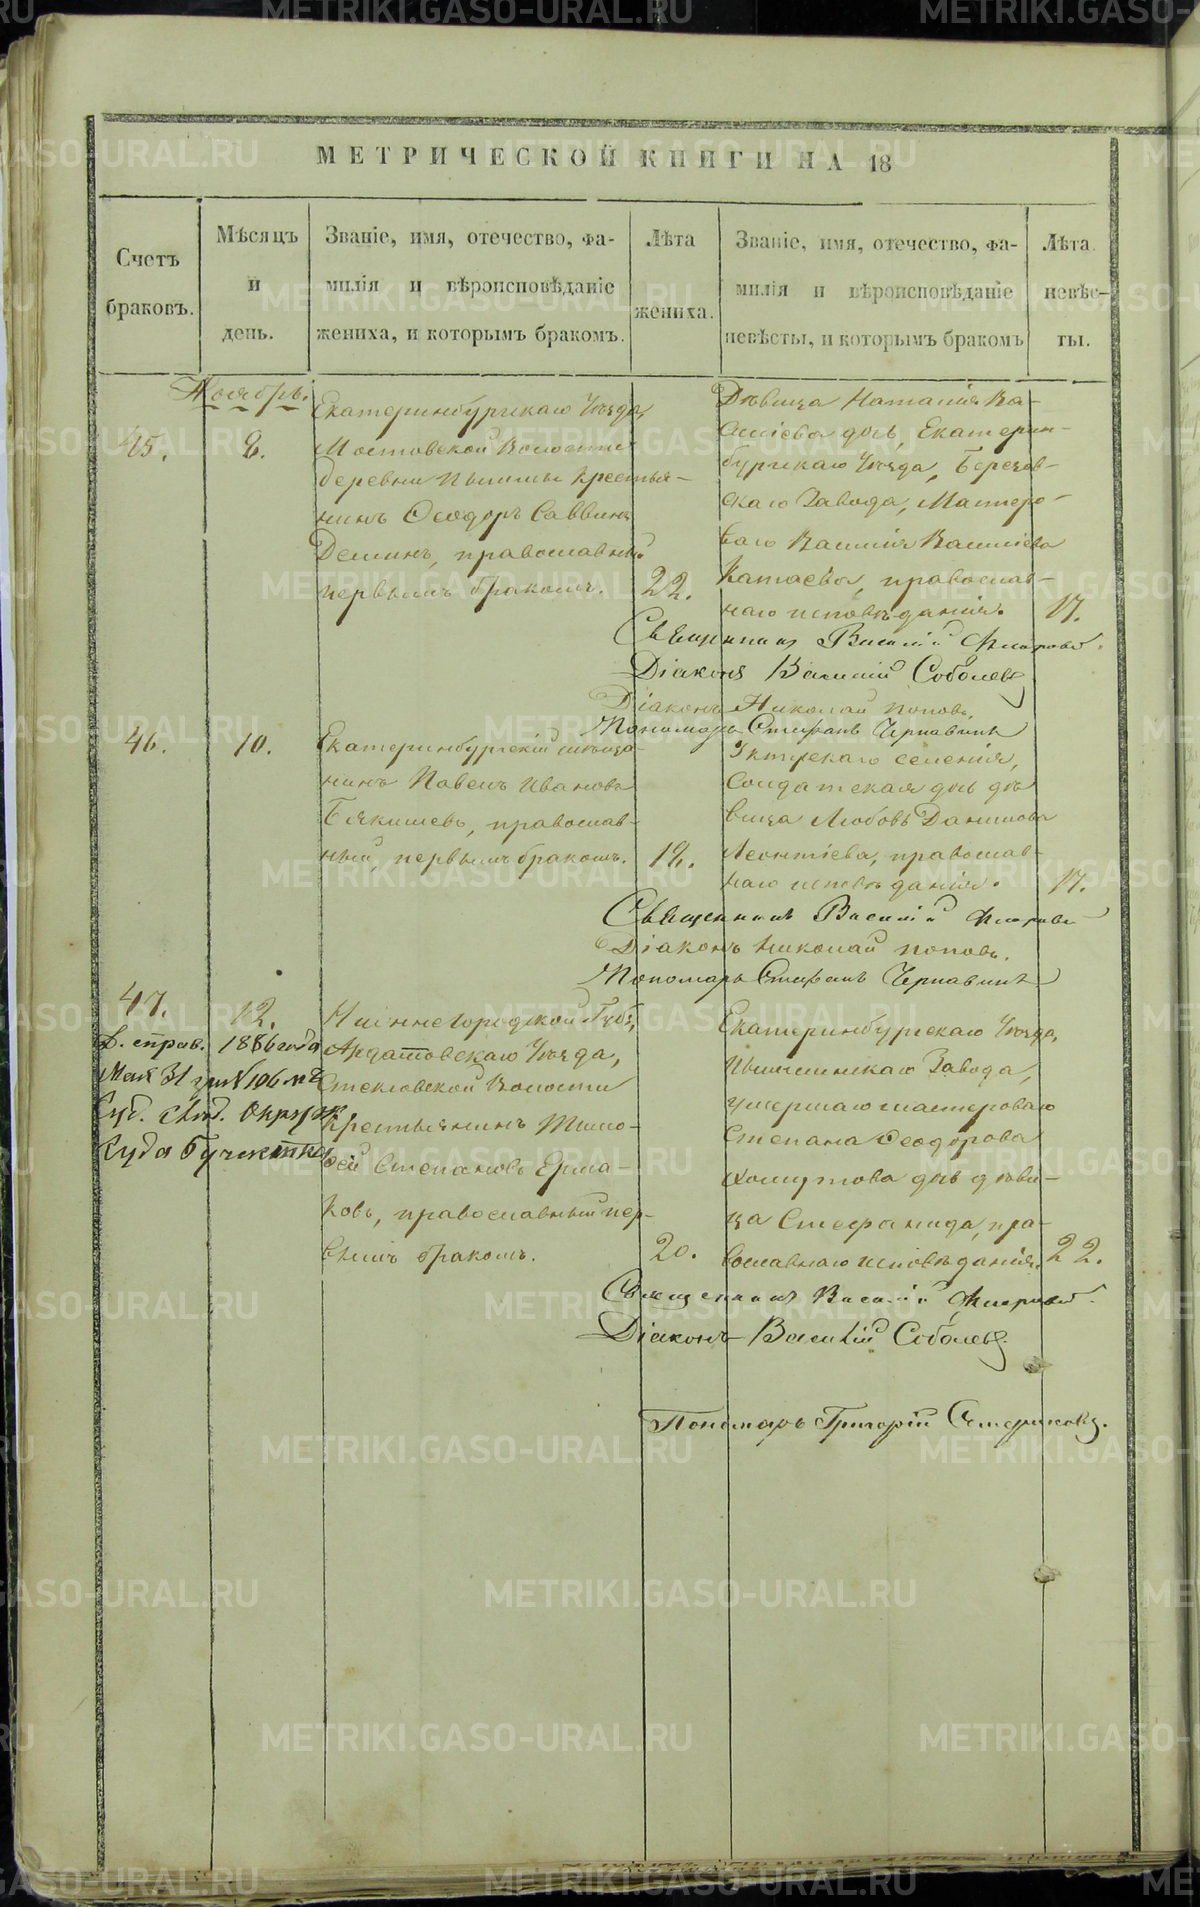 МЕТРИЧЕСКОЙ КНИГИ НА 18
Счетъ
браковъ.
Мѣсяцъ
и
день.
Званіе, имя, отечество, фа-
милія и вѣроисповѣданіе
жениха, и которымъ бракомъ.
Лѣта
жениха.
Званіе, имя, отечество, фа-
милія и вѣроисповѣданіе
невѣсты, и которымъ бракомъ
Лѣта
невѣс-
ты.
Ноябрь.
45.
8.
Екатеринбургскаго Уѣзда,
Мостовской Волости
деревни Пышмы крестья-
нинъ Ѳеодоръ Саввинъ
Деминъ, православный
первымъ бракомъ.
22.
Дѣвица Наталія Ва-
силіева дочь, Екатерин-
бургскаго Уѣзда, Березов-
скаго Завода, Мастеро-
ваго Василія Василіева
Катаева, православ-
наго исповѣданія.
17.
Священникъ Василій
Діаконъ Василій Соболевъ
Діаконъ Николай Поповъ.
Пономарь Стефанъ Чернавинъ
46.
10.
Екатеринбургскій мѣща-
нинъ Павелъ Ивановъ
православ-
ный, первымъ бракомъ.
18.
Уктускаго селенія,
Солдатская дочь дѣ
вица Любовь Данилова
Леонтіева, православ-
наго исповѣданія.
17.
Священникъ Василій
Діаконъ Николай Поповъ.
Пономарь Стефанъ Чернавинъ
47.
12.
В. справ. 1886 года
Мая 31 дня № 106
Суд. Окруж.
Суда
Нижнегородской Губ,
Ардатовскаго Уѣзда,
Стексовской Волости
Крестьянинъ Тимо-
ѳей Степановъ Ерма-
ковъ, православный пер-
вымъ бракомъ.
20.
Екатеринбургскаго Уѣзда,
Пышминскаго Завода,
умершаго мастероваго
Степана Ѳеодорова
Хомутова дочь дѣви-
ца Стефанида, пра-
вославнаго исповѣданія.
22.
Священникъ Василій
Діаконъ Василій Соболевъ.
Пономарь Григорій
METRIKI.GASO-URAL.RU